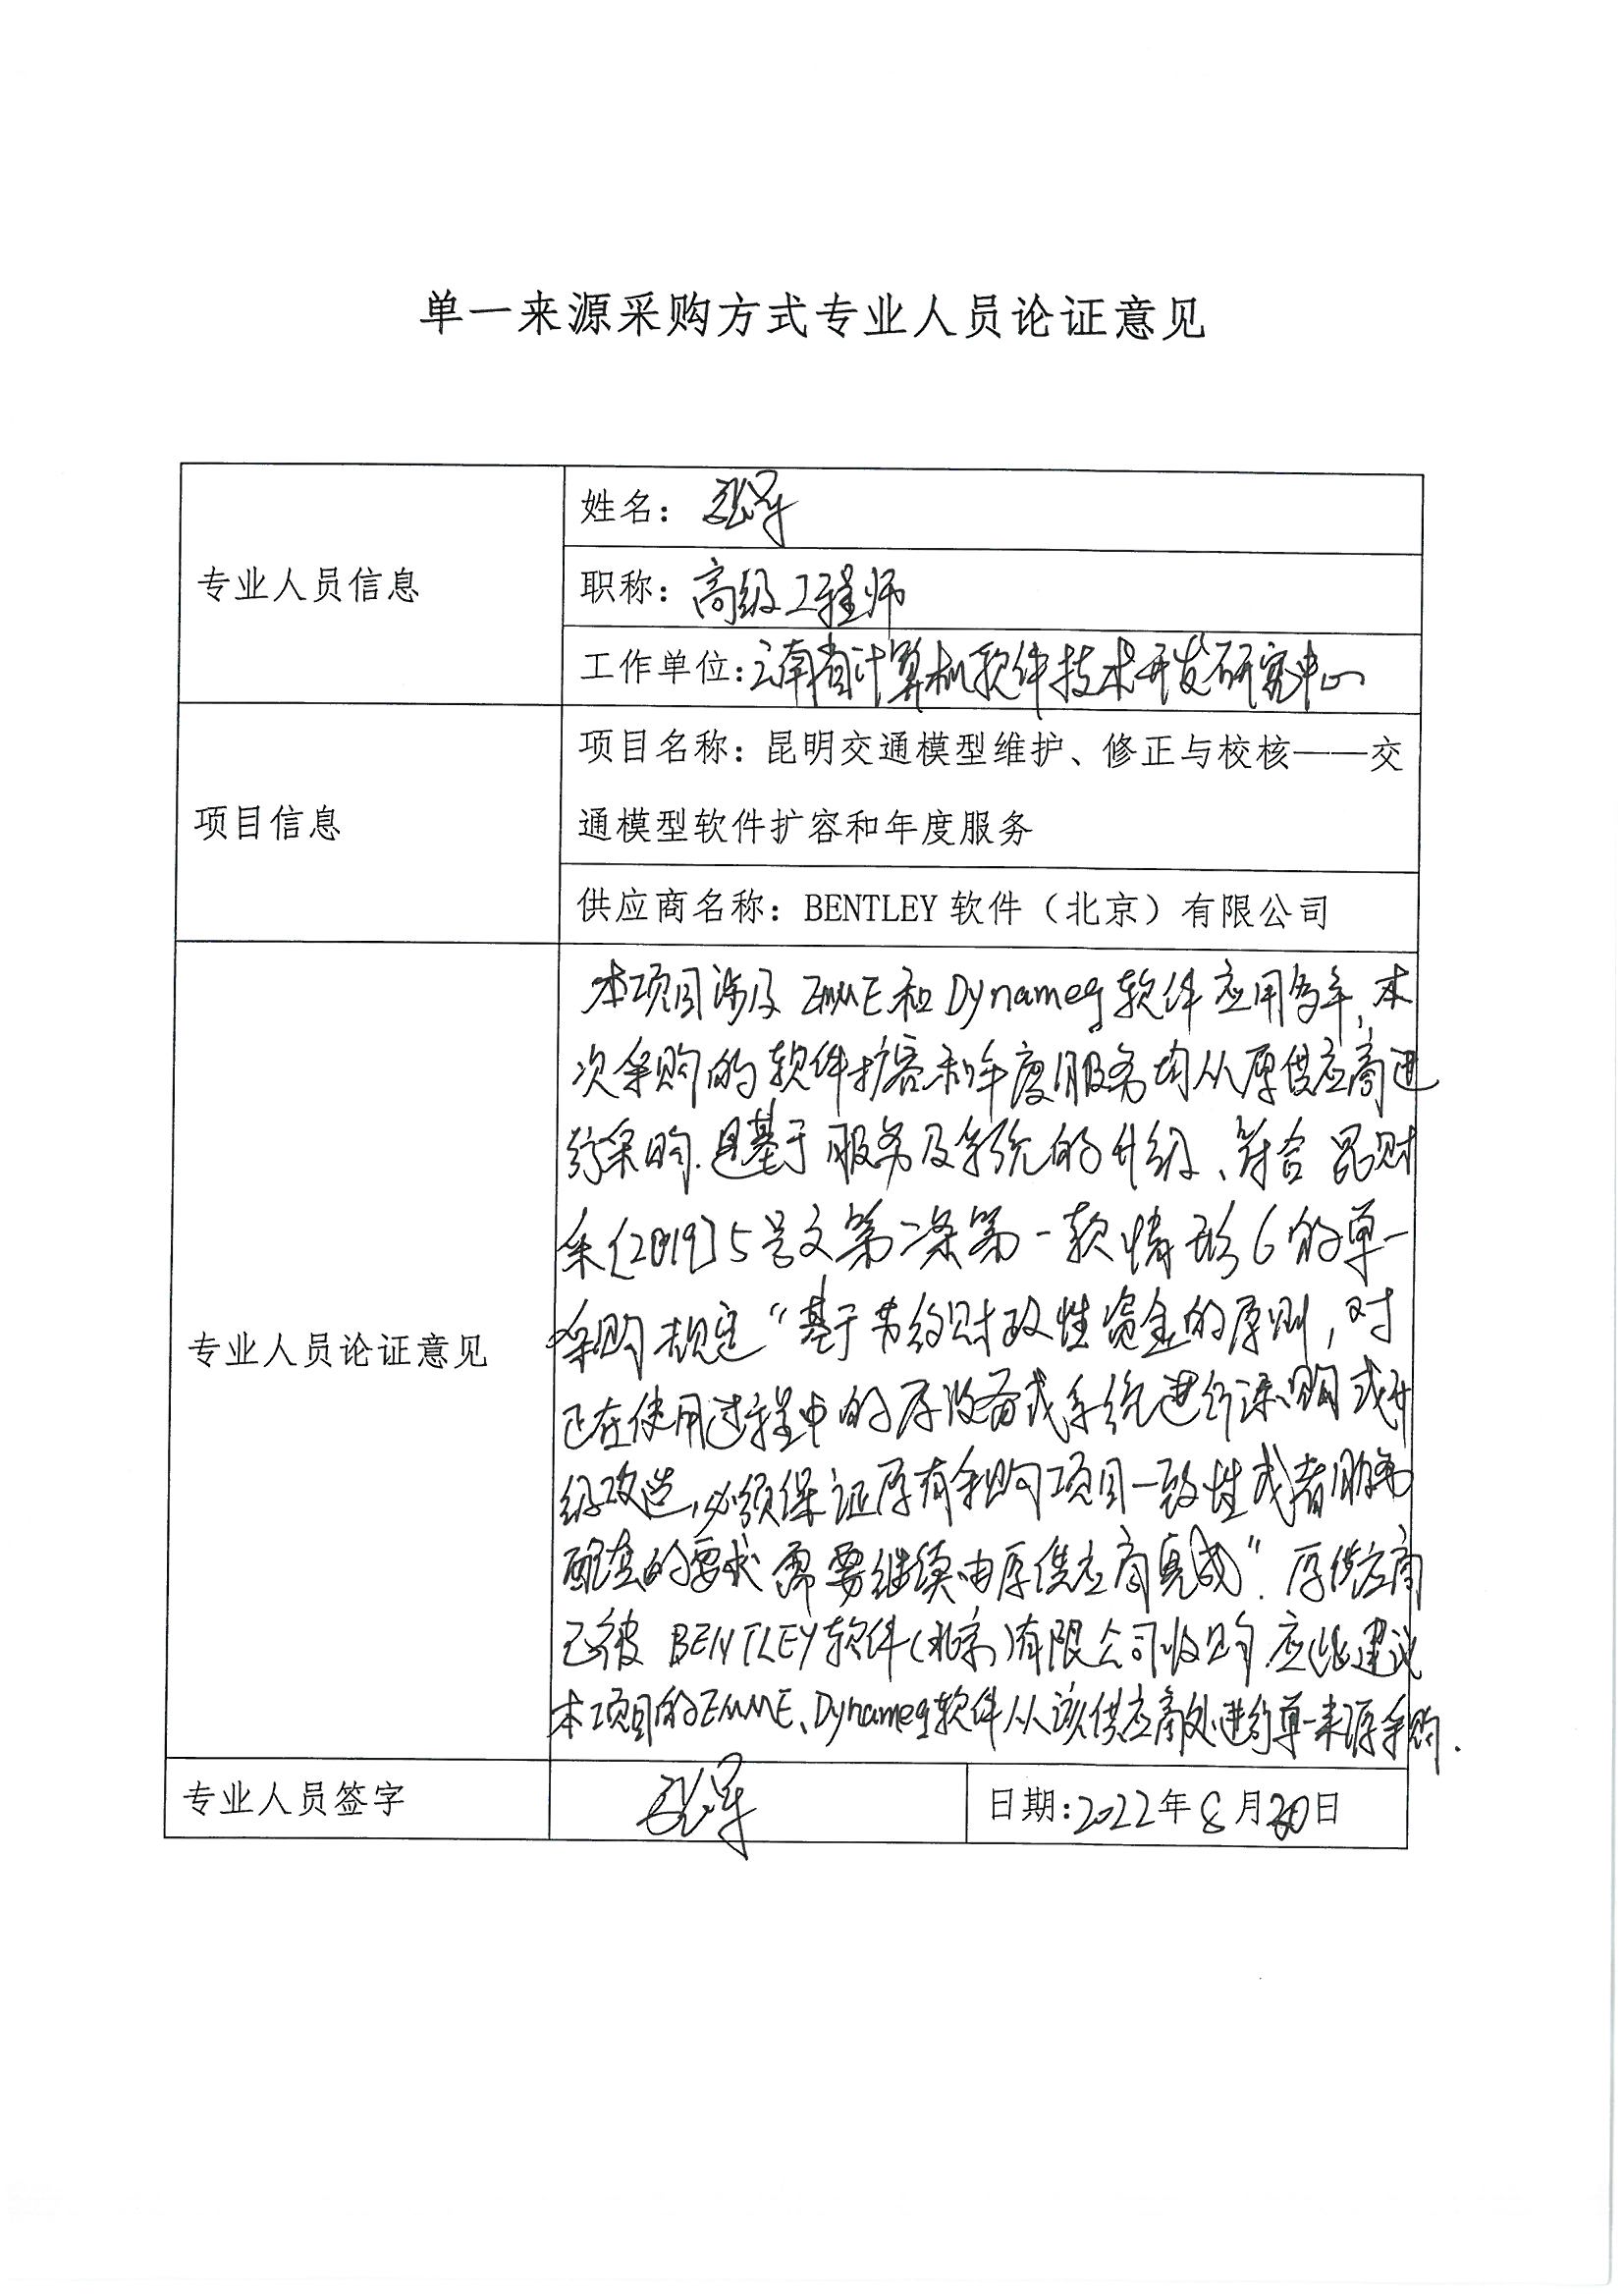 单一来源采购方式专业人员论证意见
专业人员信息
姓名：
职称：高级工程师
工作单位：云南省计算机软件技术开发研究中心
项目信息
项目名称：昆明交通模型维护、修正与校核——交
通模型软件扩容和年度服务
供应商名称：BENTLEY 软件（北京）有限公司
专业人员论证意见
本项目涉及 EMME和Dynameq软件应用多年,本
次采购的软件扩容和年度服务均从原供应商进
行采购.是基于服务及系统的升级、符合昆财
采[2019]5号文第二条第一款情形6的单一
采购规定“基于节约财政性资金的原则,对
正在使用过程中的原设备或系统进行添购或升
级改造,必须保证原有采购项目一致性或者服务
配套的要求需要继续由原供应商完成”.原供应商
已被BENTLEY软件(北京)有限公司收购.应此建议
本项目的EMME、Dynameq软件从该供应商处进行单一来源采购.
专业人员签字
日期:2022年8月20日